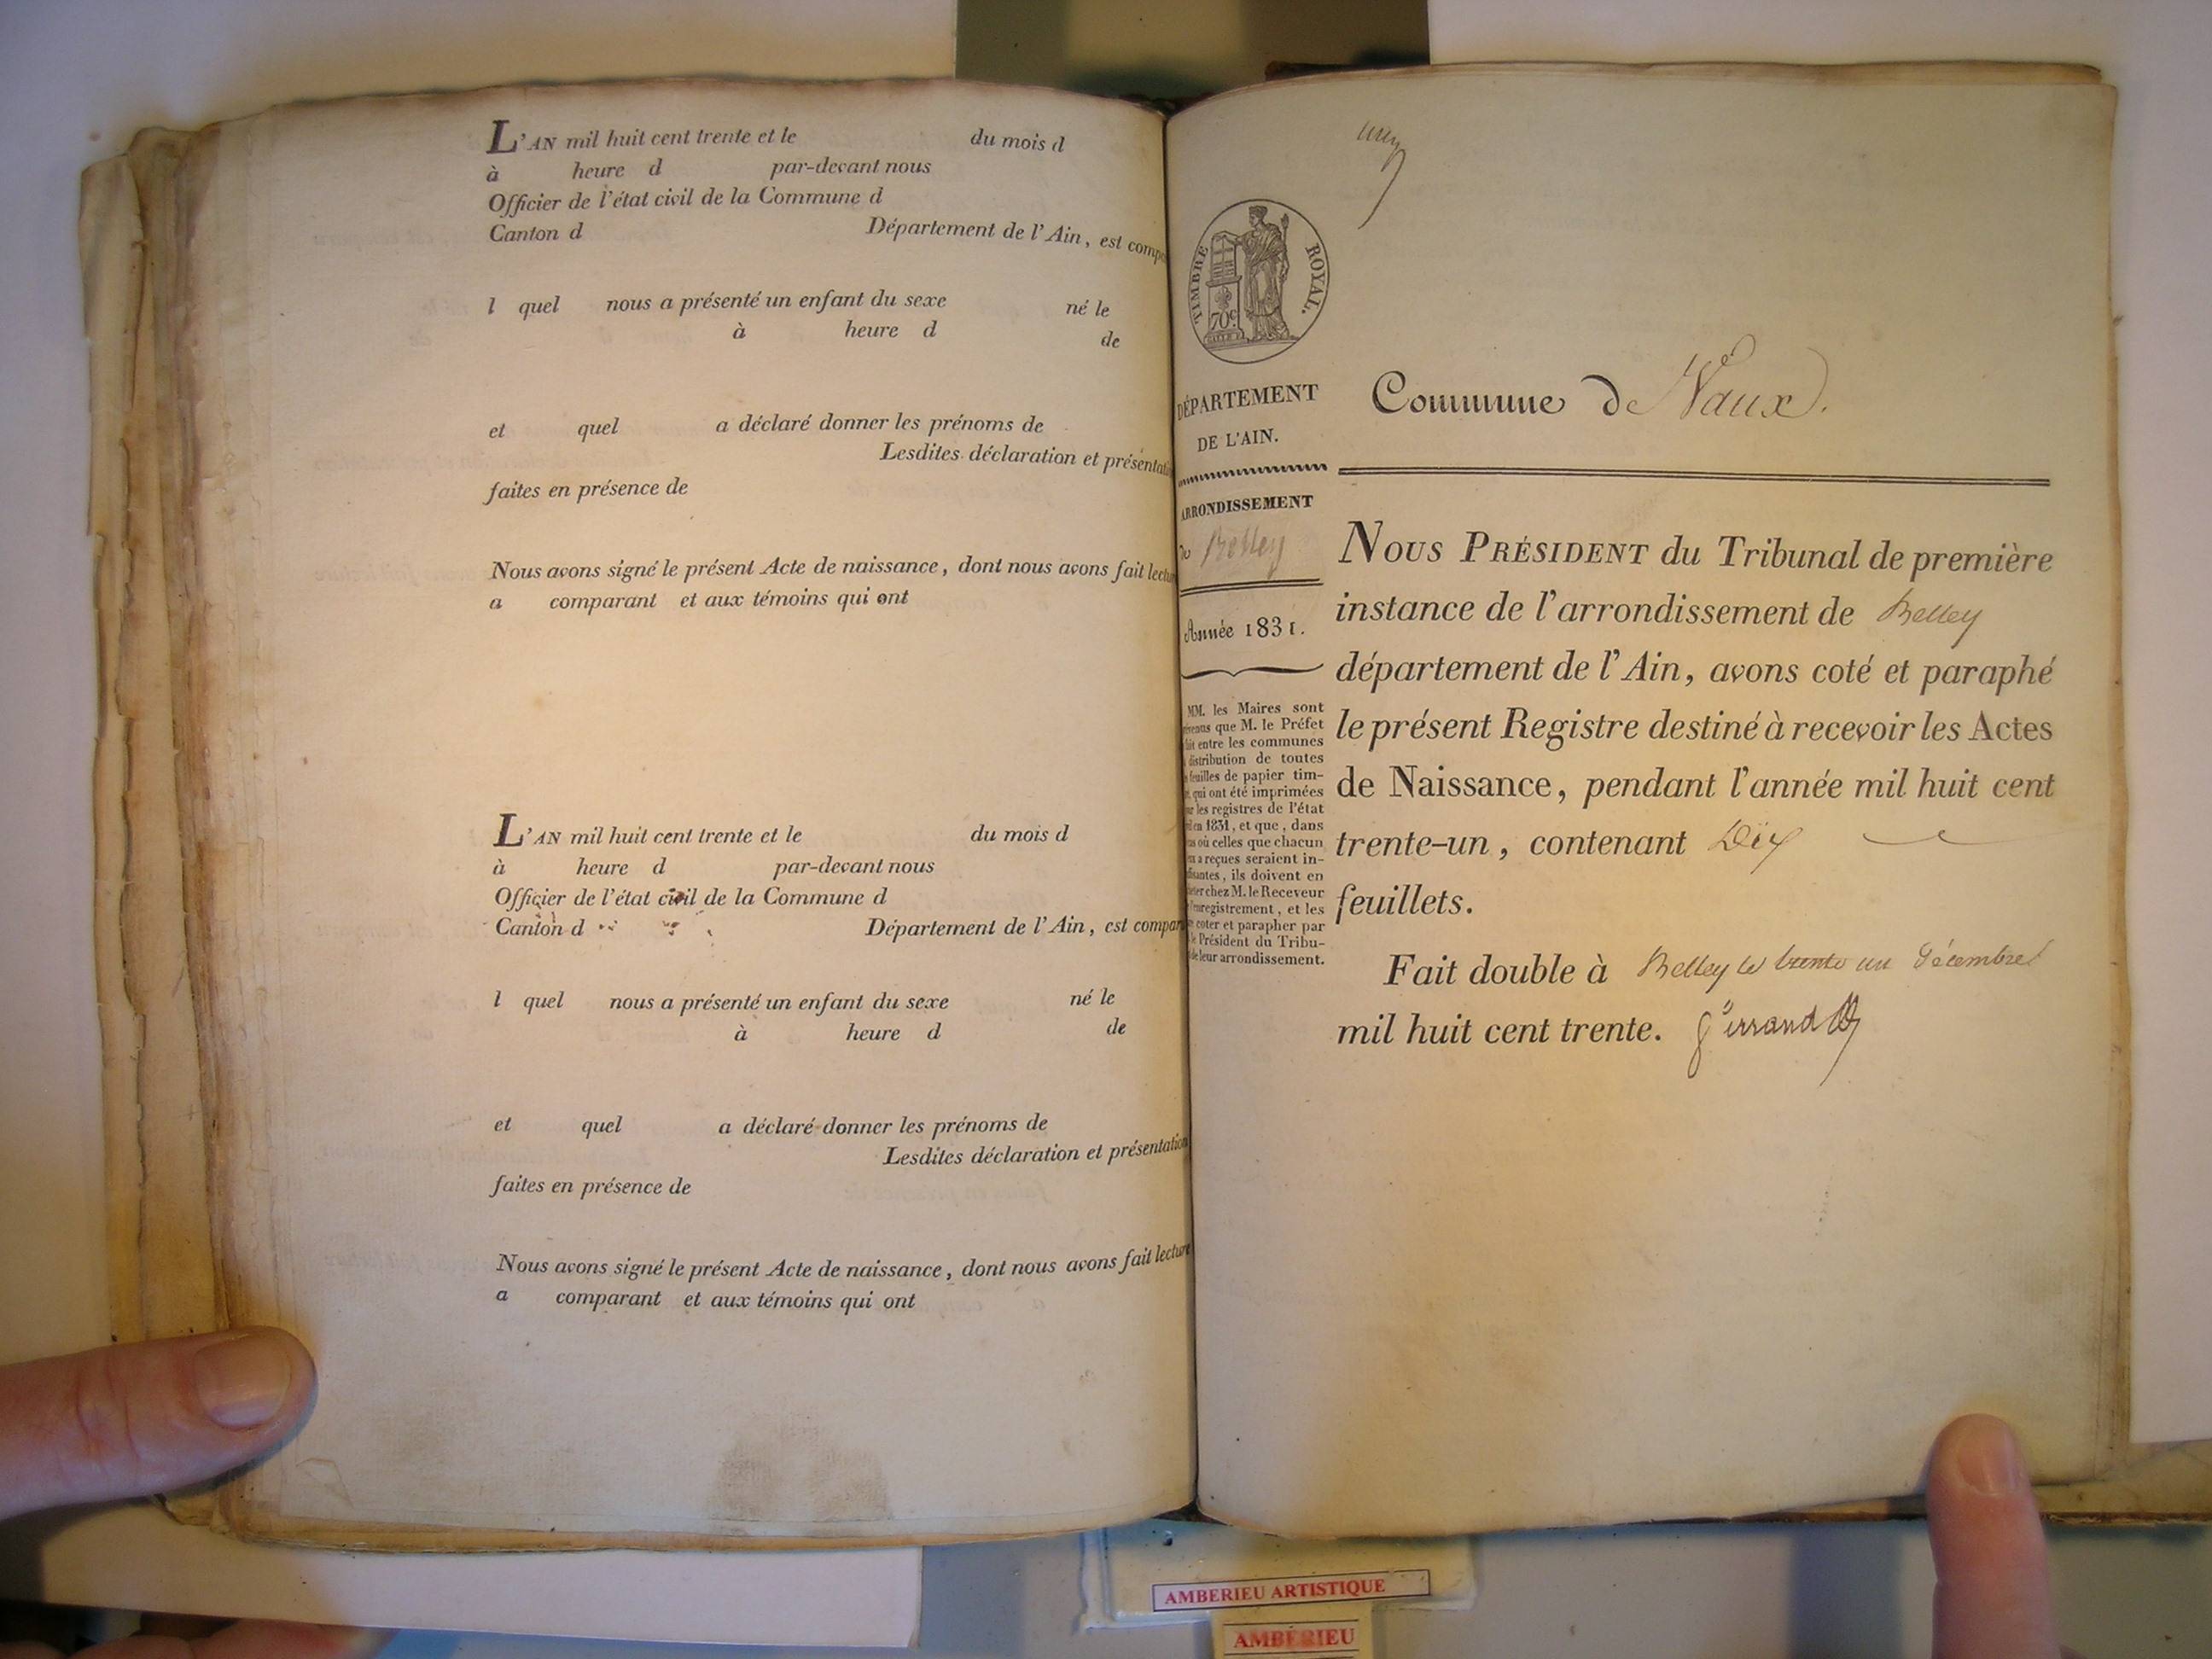 L'AN mil huit cent trente et le du mois d
à heure d par-devant nous
Officier de l'état civil de la Commune d
Canton d Département de l'Ain, est comp
l quel nous a présenté un enfant du sexe né le
à heure d de
et quel a déclaré donner les prénoms de
Lesdites déclaration et présentati
faites en présence de
Nous avons signé le présent Acte de naissance, dont nous avons fait lectu
a comparant et aux témoins qui ont
L'AN mil huit cent trente et le du mois d
à heure d par-devant nous
Officier de l'état civil de la Commune d
Canton d Département de l'Ain, est compar
l quel nous a présenté un enfant du sexe né le
à heure d de
et quel a déclaré donner les prénoms de
Lesdites déclaration et présentation
faites en présence de
Nous avons signé le présent Acte de naissance, dont nous avons fait lecture
a comparant et aux témoins qui ont
TIMBRE ROYAL.
70c
DÉPARTEMENT
DE L'AIN.
ARRONDISSEMENT
de Belley
Année 1831.
MM. les Maires sont
que M. le Préfet
fait entre les communes
distribution de toutes
feuilles de papier tim-
qui ont été imprimées
les registres de l'état
en 1831, et que, dans
cas où celles que chacun
a reçues seraient in-
, ils doivent en
chez M. le Receveur
l'enregistrement, et les
coter et parapher par
le Président du Tribu-
de leur arrondissement.
Commune de Vaux.
NOUS PRÉSIDENT du Tribunal de première
instance de l'arrondissement de Belley
département de l'Ain, avons coté et paraphé
le présent Registre destiné à recevoir les Actes
de Naissance, pendant l'année mil huit cent
trente-un, contenant Dix
feuillets.
Fait double à Belley le trente un décembre
mil huit cent trente.
AMBERIEU ARTISTIQUE
AMBERIEU